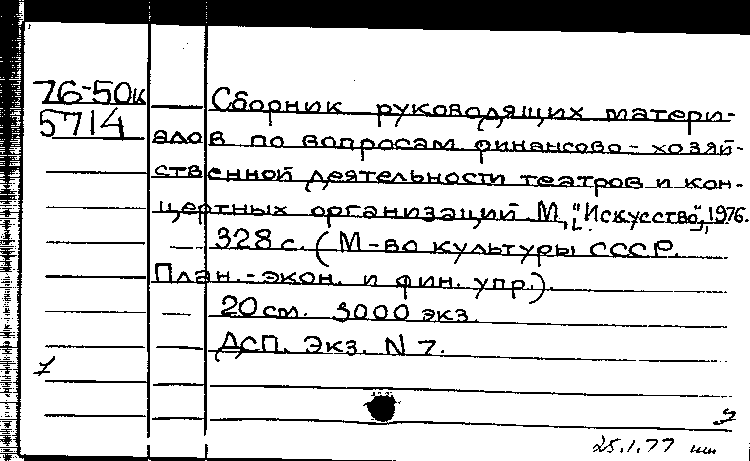 76-50к
5714
Сборник руководящих матери-
алов по вопросам финансово-хозяй-
ственной деятельности театров и кон-
цертных организаций. М., "Искусство", 1976.
328 с. (М-во культуры СССР.
План.-экон. и фин. упр.).
20 см. 3000 экз.
ДСП. Экз. N 7.
25.1.77